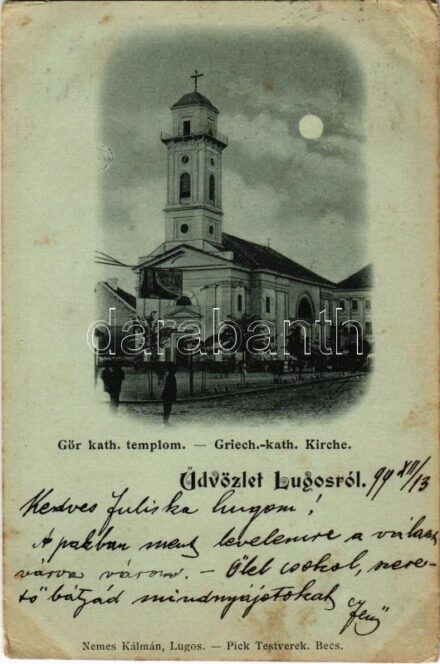 darabanth
Gör kath. templom. — Griech.-kath. Kirche.
Üdvözlet Lugosról. 99 XII/13
Kedves Juliska hugom!
A pakban ment levelemre a választ
várva várom. — Ölel csokol, szere-
tő bátyád mindnyájatokat
Jenő
Nemes Kálmán, Lugos. — Pick Testverek. Becs.